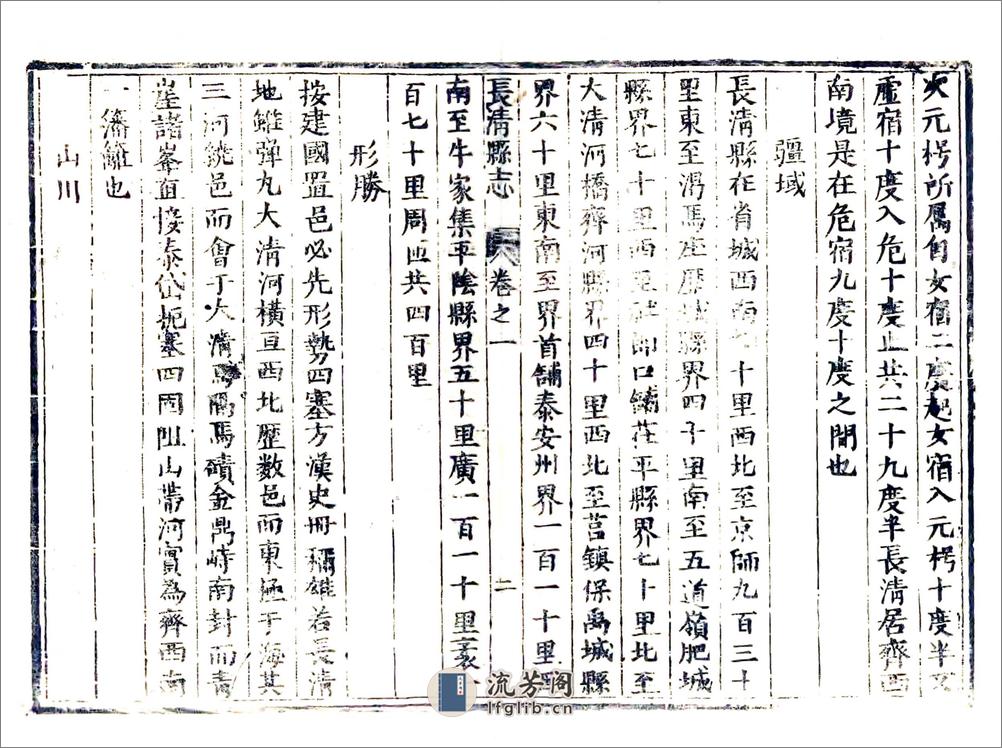 次元枵所属自女宿二度起女宿入元枵十度半又
虚宿十度入危十度止共二十九度半長清居齊西
南境是在危宿九度十度之間也
疆域
長清縣在省城西南七十里西北至京師九百三十
里東至澇馬庄歷城縣界四十里南至五道嶺肥城
縣界七十里西至口舖茌平縣界七十里北至
大清河橋齊河縣界四十里西北至莒鎮保禹城縣
界六十里東南至界首舖泰安州界一百一十里西
長清縣志 卷之一 二
南至牛家集平陰縣界五十里廣一百一十里袤一
百七十里周匝共四百里
形勝
按建國置邑必先形勢四塞方漢史冊稱雄若長清
地雖弹丸大清河橫亘西北歷数邑而東極于海其
三河繞邑而會于大清馬馬磧金鳥峙南封而青
崖諸峯直接泰岱扼塞四固阻山帶河實為齊西南
一籓籬也
山川
流芳阁
lfglib.cn